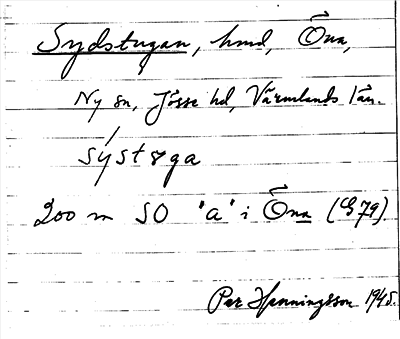 Sydstugan, hmd, Öna,
Ny sn, Jösse hd, Värmlands län.
sýstøga
200 m SO "a" i Öna (G79)
Per Henningsson 1945.